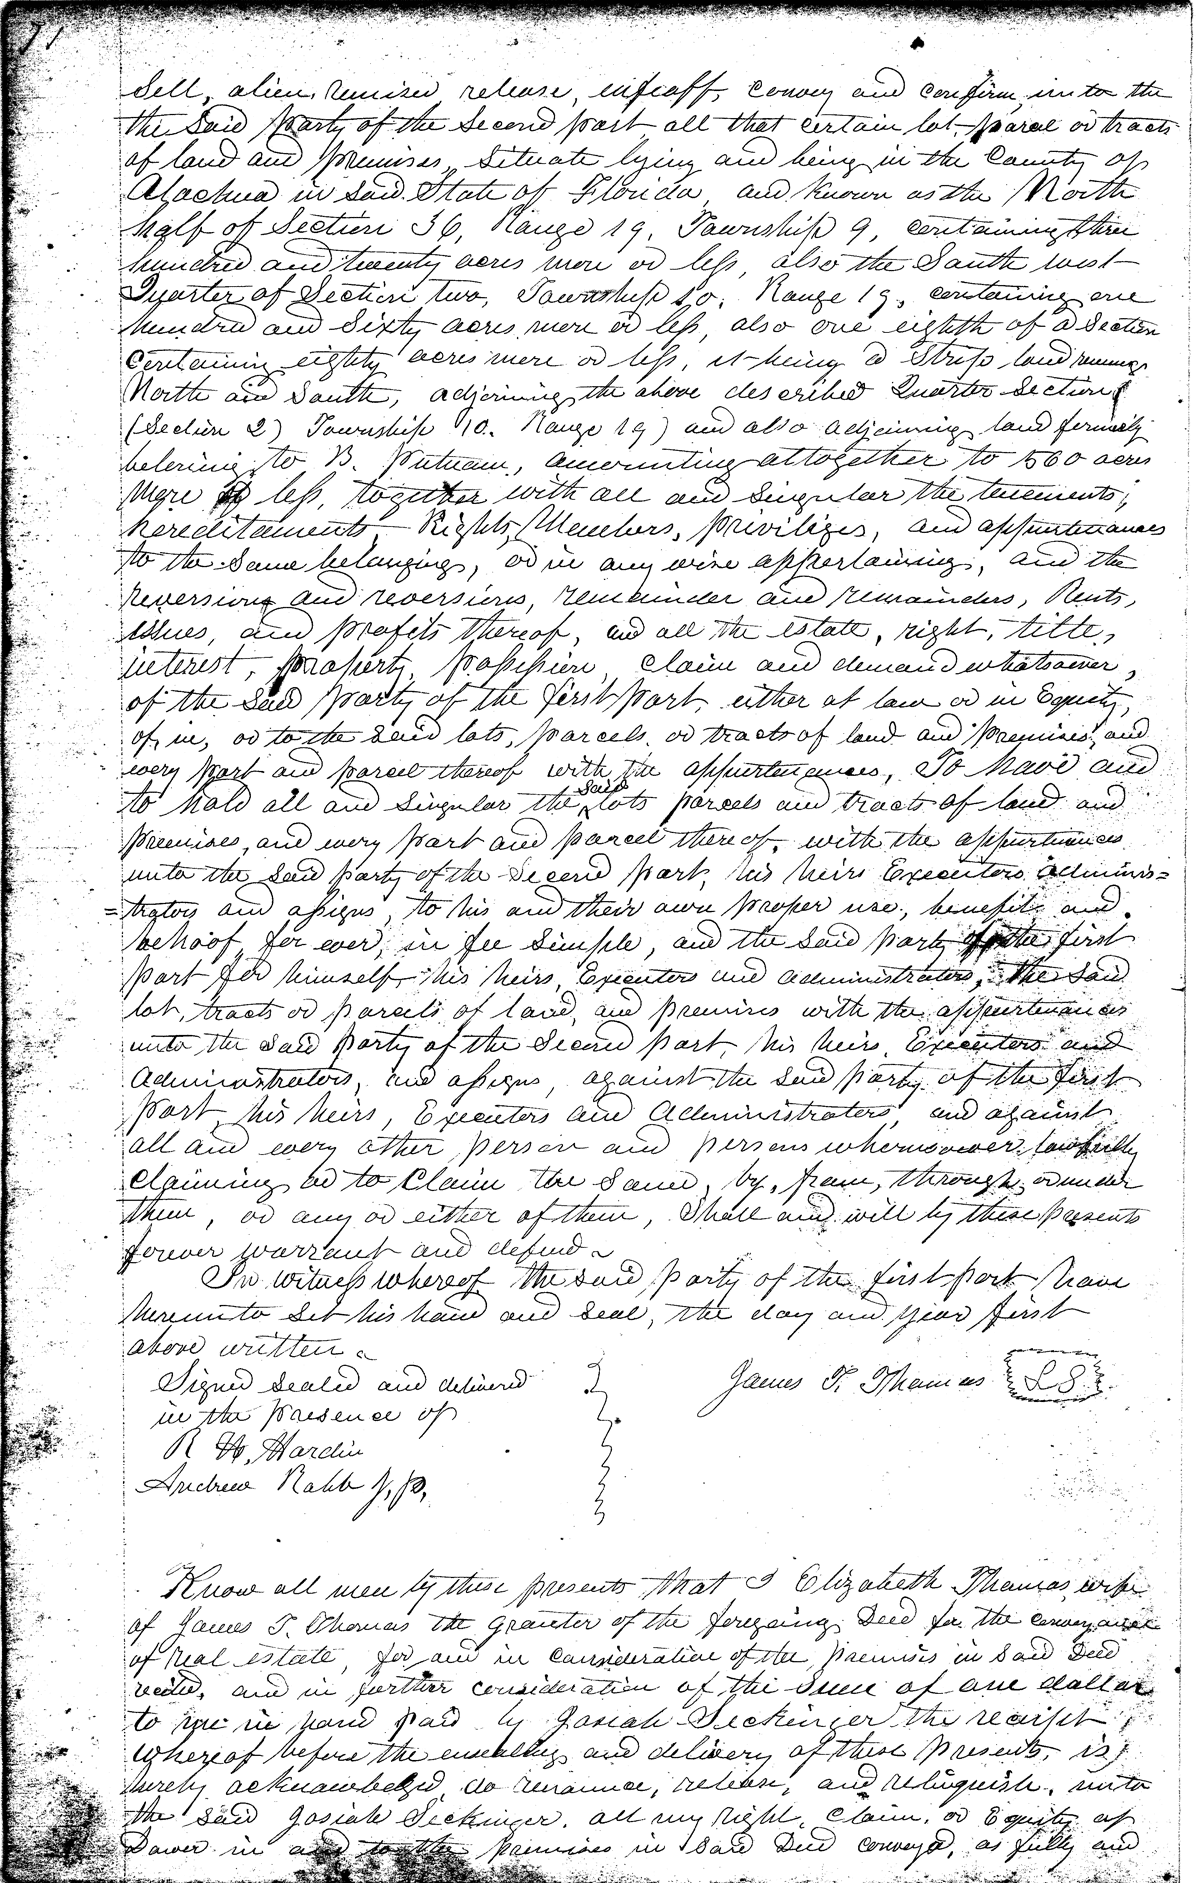 Sell, alien, remised, release, enfeoff, convey and confirm, unto the
the Said party of the Second part all that certain lot, parcel or tracts
of land and premises, Situate lying and being in the County of
Alachua in said State of Florida, and known as the North
half of Section 36, Range 19, Township 9, containing three
hundred and twenty acres more or less, also the South west
Quarter of Section two, Township 10, Range 19, containing one
hundred and Sixty acres more or less, also one eighth of a Section
Containing eighty acres more or less, it being a Strip land running
North and South, adjoining the above described Quarter Section
(Section 2) Township 10. Range 19) and also adjoining land formerly
beloning to B. Putnam, amounting altogether to 560 acres
More or less, together with all and Singular the tenements,
hereditaments Rights, Members, priviliges, and appurtenances
to the Same belonging, or in any wise appertaining, and the
reversion and reversions, remainder and remainders, Rents,
issues, and profits thereof, and all the estate, right, title,
interest, property, possession, claim and demand whatsoever,
of the Said party of the first part, either at law or in Equity,
of, in, or to the said lots, parcels, or tracts of land and premises, and
every part and parcel thereof with the appurtenances, To have and
to hold all and Singular the said lots parcels and tracts of land and
premises, and every part and parcel thereof, with the appurtenances
unto the Said party of the Second part, his heirs Executors adminis=
=trators and assigns, to his and their own proper use, benefit and
behoof, for ever, in fee Simple, and the Said party of the first
part for himself his heirs, Executors and administrators, the Said
lot, tracts or parcels of land, and premises with the appurtenances
unto the Said Party of the Second part, his heirs, Executors and
Administrators, and assigns, against the Said party of the first
part, his heirs, Executors and Administrators, and against
all and every other person and persons whomsoever lawfully
Claiming or to Claim the Same, by, from, through or under
them, or any or either of them, Shall and will by these presents
forever warrant and defend.
In witness whereof the said party of the first part have
hereunto Set his hand and Seal, the day and year first
above written.
Signed Sealed and delivered
in the presence of
James T. Thomas L S
R H, Hardin
Andrew Rabb J, P,
Know all men by these presents that I Elizabeth Thomas, wife
of James T. Thomas the Grantor of the foregoing Deed for the conveyance
of real estate, for and in consideration of the premises in Said Deed
recited, and in further consideration of the Sum of one dollar
to me in hand paid by Josiah Seckinger the receipt
whereof before the ensealing and delivery of these presents, is
hereby acknowledged do renounce, release, and relinquish, unto
the Said Josiah Seckinger, all my right, Claim, or Equity of
Dower in and to the premises in Said Deed conveyed, as fully and